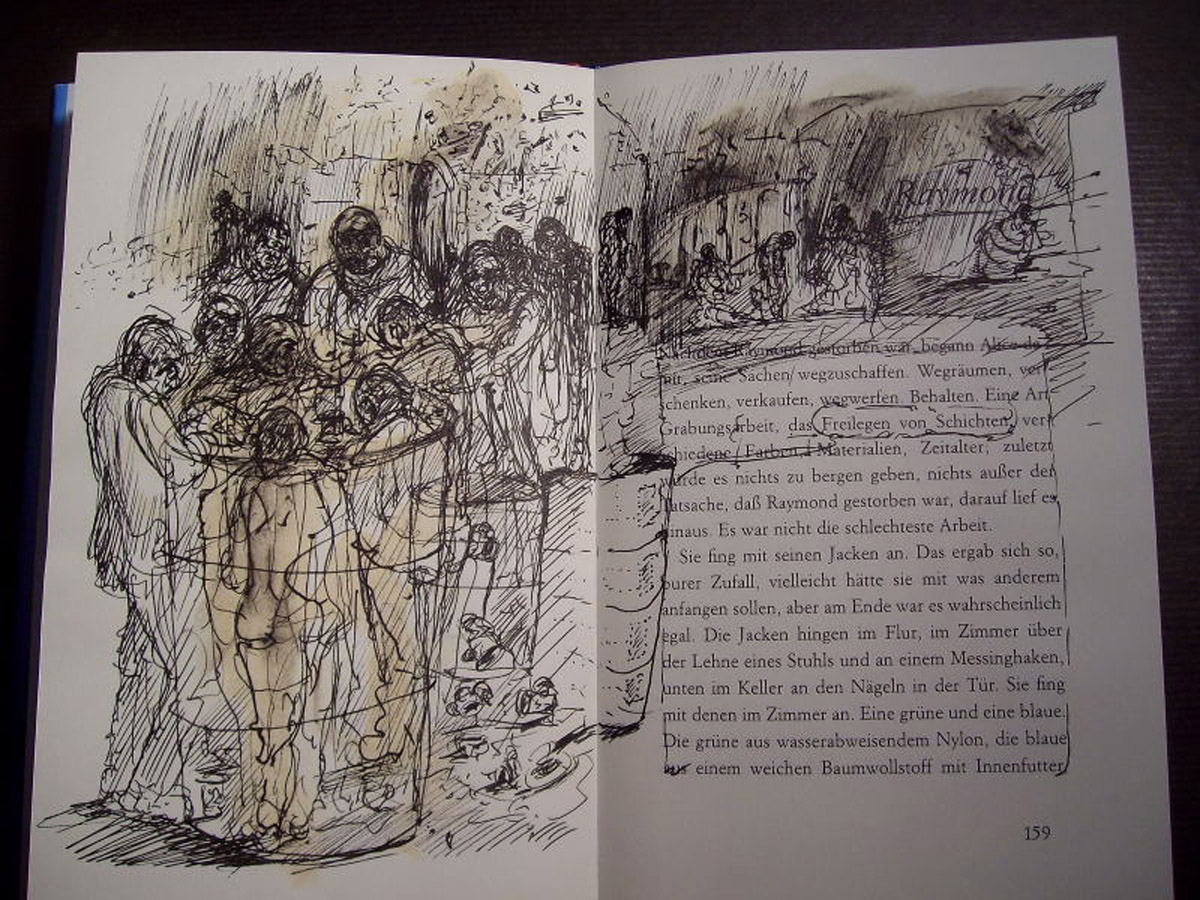 Raymond
Nachdem Raymond gestorben war, begann Alice da-
mit, seine Sachen wegzuschaffen. Wegräumen, ver-
schenken, verkaufen, wegwerfen. Behalten. Eine Art
Grabungsarbeit, das Freilegen von Schichten, ver-
schiedene Farben, Materialien, Zeitalter; zuletzt
würde es nichts zu bergen geben, nichts außer der
Tatsache, daß Raymond gestorben war, darauf lief es
hinaus. Es war nicht die schlechteste Arbeit.
Sie fing mit seinen Jacken an. Das ergab sich so,
purer Zufall, vielleicht hätte sie mit was anderem
anfangen sollen, aber am Ende war es wahrscheinlich
egal. Die Jacken hingen im Flur, im Zimmer über
der Lehne eines Stuhls und an einem Messinghaken,
unten im Keller an den Nägeln in der Tür. Sie fing
mit denen im Zimmer an. Eine grüne und eine blaue.
Die grüne aus wasserabweisendem Nylon, die blaue
aus einem weichen Baumwollstoff mit Innenfutter
159